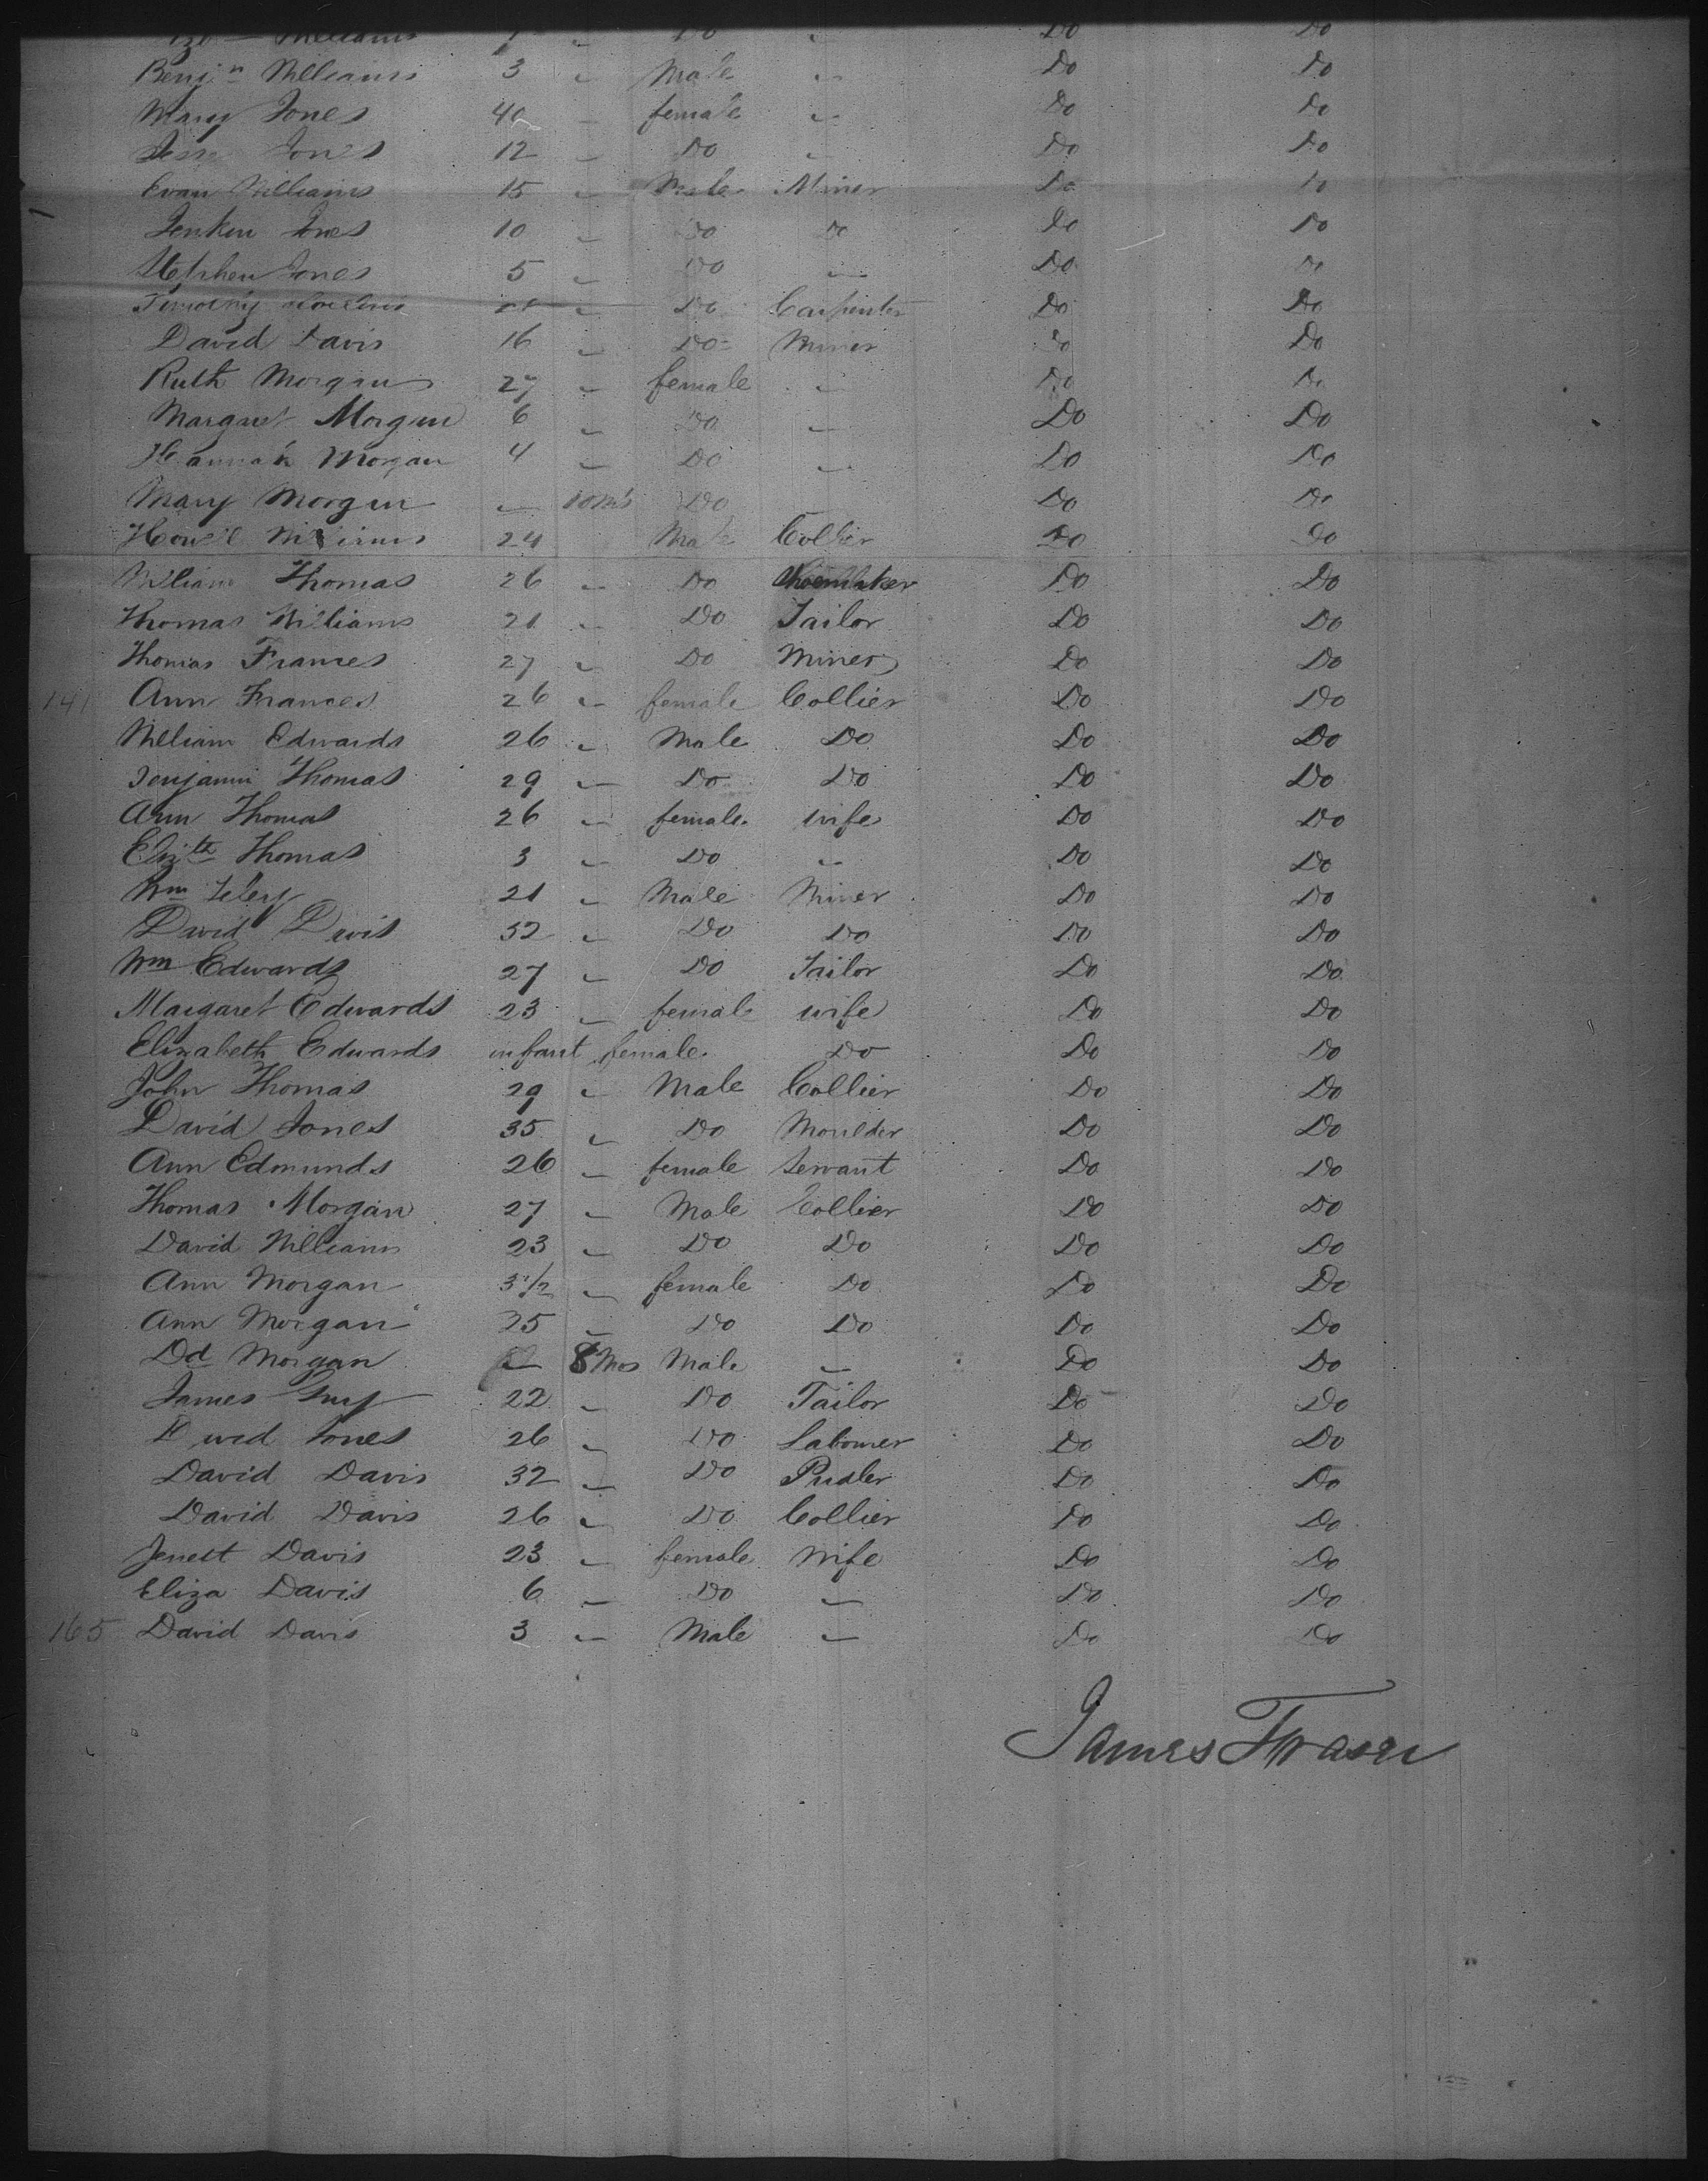 Williams 7 " Do " Do Do
Benjn Williams 3 " Male " Do Do
Mary Jones 40 " female " Do Do
Jones 12 " Do " Do Do
Evan Williams 15 " Male Miner Do Do
Jenkin Jones 10 " Do Do Do Do
Stephen Jones 5 " Do " Do Do
Timothy " Do Carpenter Do Do
David Davis 16 " Do Miner Do Do
Ruth Morgan 27 " female " Do Do
Margaret Morgan 6 " Do " Do Do
Hannah Morgan 4 " Do " Do Do
Mary Morgan " 10 ms Do Do Do
Howell Williams 24 Male Collier Do Do
William Thomas 26 " Do Shoemaker Do Do
Thomas Williams 21 " Do Tailor Do Do
Thomas Frances 27 " Do Miner Do Do
141 Ann Frances 26 " female Collier Do Do
William Edwards 26 " Male Do Do Do
Benjamin Thomas 29 " Do Do Do Do
Ann Thomas 26 " female wife Do Do
Elizth Thomas 3 " Do " Do Do
Wm 21 " Male Miner Do Do
David Davis 52 " Do Do Do Do
Wm Edwards 27 " Do Tailor Do Do
Margaret Edwards 23 " female wife Do Do
Elizabeth Edwards infant female Do Do Do
John Thomas 29 " Male Collier Do Do
David Jones 35 " Do Moulder Do Do
Ann Edmunds 26 " female Servant Do Do
Thomas Morgan 27 " Male Collier Do Do
David Williams 23 " Do Do Do Do
Ann Morgan 3 1/2 " female Do Do Do
Ann Morgan 25 " Do Do Do Do
Dd Morgan " 8 Mos Male " Do Do
James Guy 22 " Do Tailor Do Do
David Jones 26 " Do Labourer Do Do
David Davis 32 " Do Pudler Do Do
David Davis 26 " Do Collier Do Do
Jenett Davis 23 " female Wife Do Do
Eliza Davis 6 " Do " Do Do
165 David Davis 3 " Male " Do Do
James Fraser